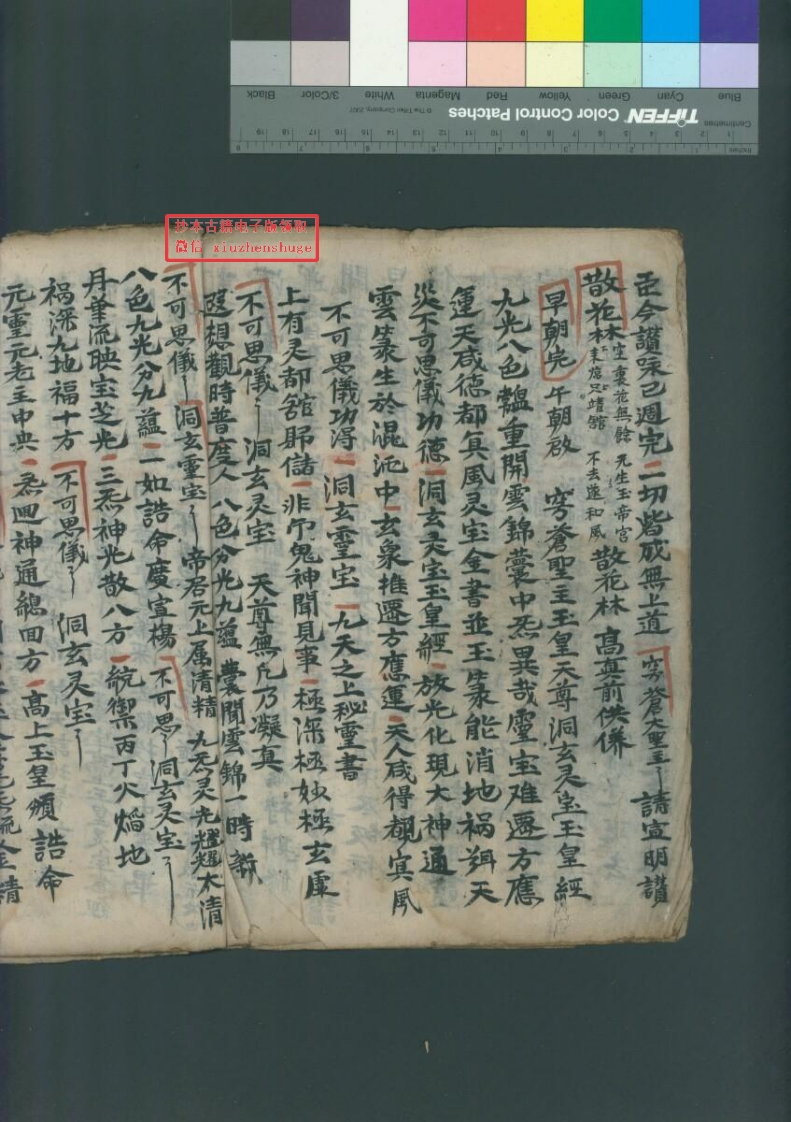 Blue Cyan Green Yellow Red Magenta White 3/Color Black
TIFFEN Color Control Patches
© The Tiffen Company, 2007
Centimetres
Inches
抄本古籍电子版领取
微信 xiuzhenshuge
至今讚咏已週完 一切皆成無上道 穹蒼大聖主 請宣明讚
散花林 空裏花無餘 元生玉帝宮 散花林 高真前供養
不去遠和風
早朝完 午朝啟 穹蒼聖主玉皇天尊洞玄灵宝玉皇經
九光八色韞重開雲錦囊中炁異哉靈宝难遷方應
運天咸德都真風灵宝金書並玉篆能消地祸弭天
災不可思儀功德 洞玄灵宝玉皇經 放光化現大神通
雲篆生於混沌中 玄象推遷方應運 天人咸得覩冥風
不可思儀功得 洞玄靈宝 九天之上秘靈書
上有灵都舘 非尔鬼神聞見事 極深極妙極玄虛
不可思儀 洞玄灵宝 天尊無凡乃凝真
遐想觀時普度人 八色分光九蕴 囊開雲錦一時新
不可思儀 洞玄靈宝 帝居元上属清精 九炁灵光耀木清
八色九光分九蕴 一如誥命廣宣楊 不可思 洞玄灵宝
丹華流映宝芝光 三炁神光散八方 統禦丙丁火熖地
祸深九地福十方 不可思儀 洞玄灵宝
元靈元老主中央 炁迴神通總四方 高上玉皇頒誥命